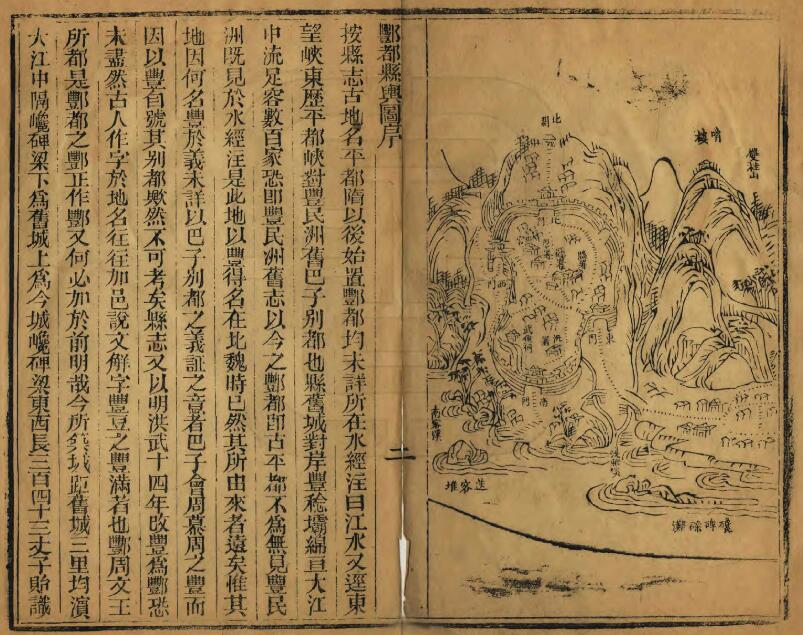 北門
哨樓
雙桂山
北門
西門
東門
武侯祠
南門
送客堆
酆都縣輿圖序
按縣志古地名平都隋以後始置酆都均未詳所在水經注曰江水又逕東
望峽東歷平都峽對豐民洲舊巴子別都也縣舊城對岸豐稔壩綿亘大江
中流足容數百家恐即豐民洲舊志以今之酆都即古平都不為無見豐民
洲既見於水經注是此地以豐得名在北魏時已然其所由來者遠矣惟其
地因何名豐於義未詳以巴子別都之義証之意者巴子會周慕周之豐而
因以豐自號其別都歟然不可考矣縣志又以明洪武十四年改豐為酆恐
未盡然古人作字於地名往往加邑說文解字豐豆之豐滿者也酆周文王
所都是酆都之酆正作酆又何必加於前明哉今所築城距舊城二里均濱
大江中隔巉碑梁下為舊城上為今城巉碑梁東西長二百四十三丈子貽識
二